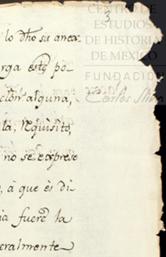 CENTRO DE
ESTUDIOS
DE HISTORIA
DE MÉXICO
FUNDACIÓN
Carlos Slim
3
lo dho su anex
rga este po
cion alguna,
la, requisito,
no se exprese
, à que es di
ia fuere la
eralmente